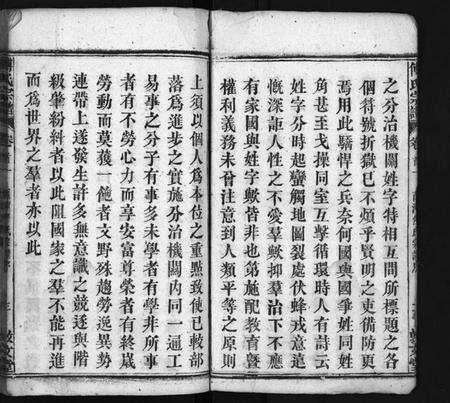 之分治機關姓字特相互間所標題之各
個符號折獄巳不煩乎賢明之吏備防更
焉用此驕悍之兵奈何國與國爭姓同姓
角甚至戈操同室互擊循環時人有詩云
姓字分時起蠻觸地圖裂處伏蜂戎意逺
慨深詎人性之不愛羣歟抑羣治下不應
有家國與姓字歟皆非也第施配教育曁
權利義務未曾注意到人類平等之原則
上須以個人爲本位之重㸃致使已較部
落爲進步之實施分治機關内同一通工
易事之分子有事多未學者有學非所事
者有不勞心力而享安富尊榮者有終歲
勞動而莫獲一飽者文野殊趨勞逸異勢
連帶上遂發生許多無意識之競逐與階
級肇紛糾者以此阻國家之羣不能再進
而爲世界之羣者亦以此